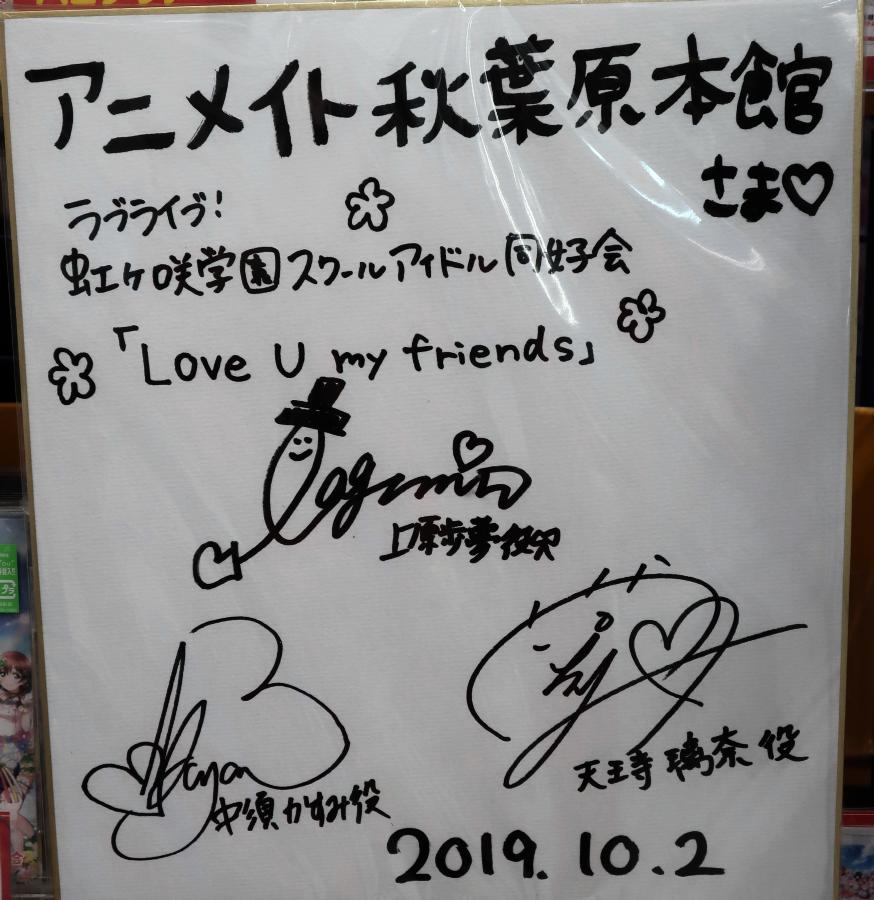 アニメイト秋葉原本館
さま♡
ラブライブ!
虹ヶ咲学園スクールアイドル同好会
「Love U my friends」
上原歩夢役
天王寺璃奈役
中須かすみ役
2019.10.2